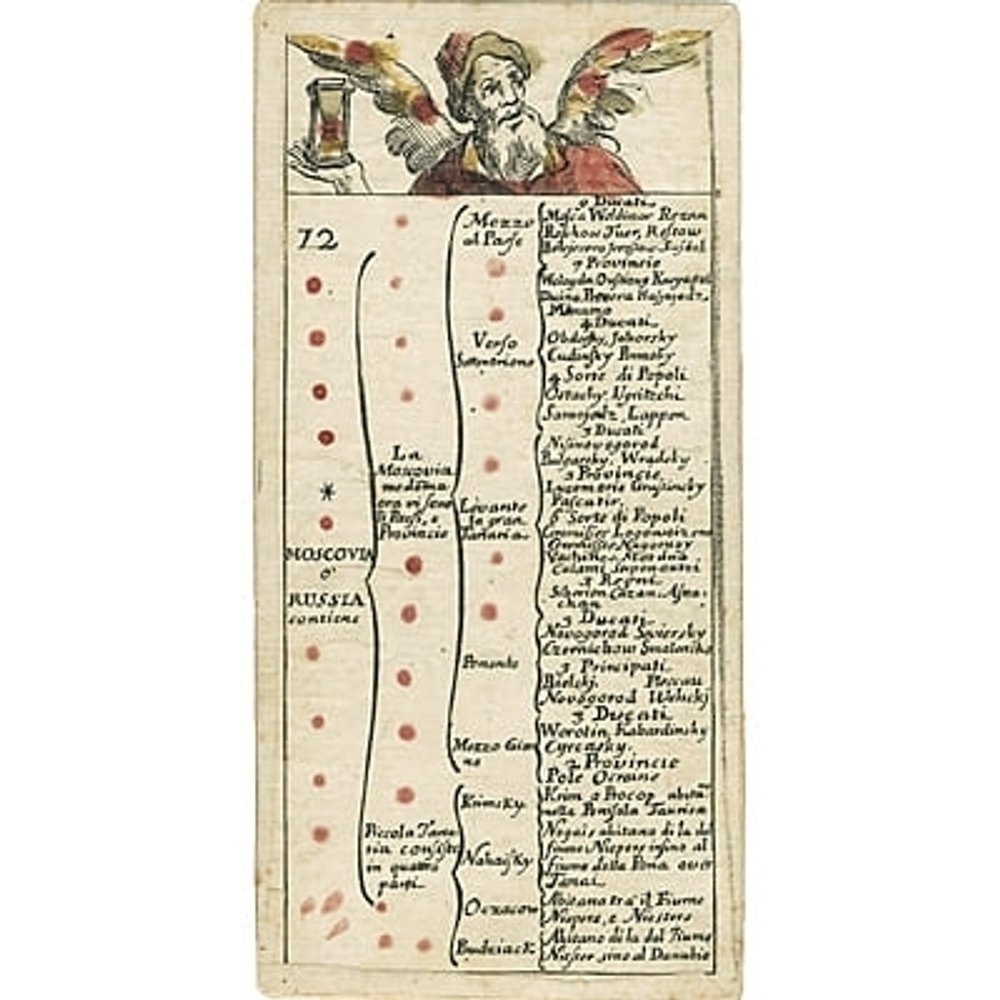 12
MOSCOVIA
o'
RUSSIA
contiene
La
Moscovia
Provincie
Piccola Tarta
ria consiste
in quattro
parti
Mezzo
al Paese
Verso
Settentrione
Levante
la gran
Tartaria
Ponente
Mezzo Gior
no
Krimsky
Nahaisky
Oczacow
Budziack
9 Ducati
Mosca Woldimer Rezan
Tuer, Rostow
7 Provincie
4 Ducati
Obdorsky, Juhorsky
4 Sorte di Popoli
Ostachy Ugritzchi
Samojedz Lappon
3 Ducati
Nisinowogorod
Bulgarsky, Wradsky
3 Provincie
Pascatir
6 Sorte di Popoli
3 Regni
Siberien Cazan Astra
chan
3 Ducati
Novogorod Swiersky
Czernichow Smolensko
3 Principati
Bielski Plescau
Novogorod Welickj
3 Ducati
Worotin, Kabardinsky
Cyrcasky.
2 Provincie
Pole Ocraine
Krim o Procop
nella Penisola Taurica
Nogais abitano di la del
fiume Niepere insino al
fiume della Dona over
Tanai
Abitano tra il Fiume
Niepere, e Niestero
Abitano di la dal Fiume
Niester sino al Danubio